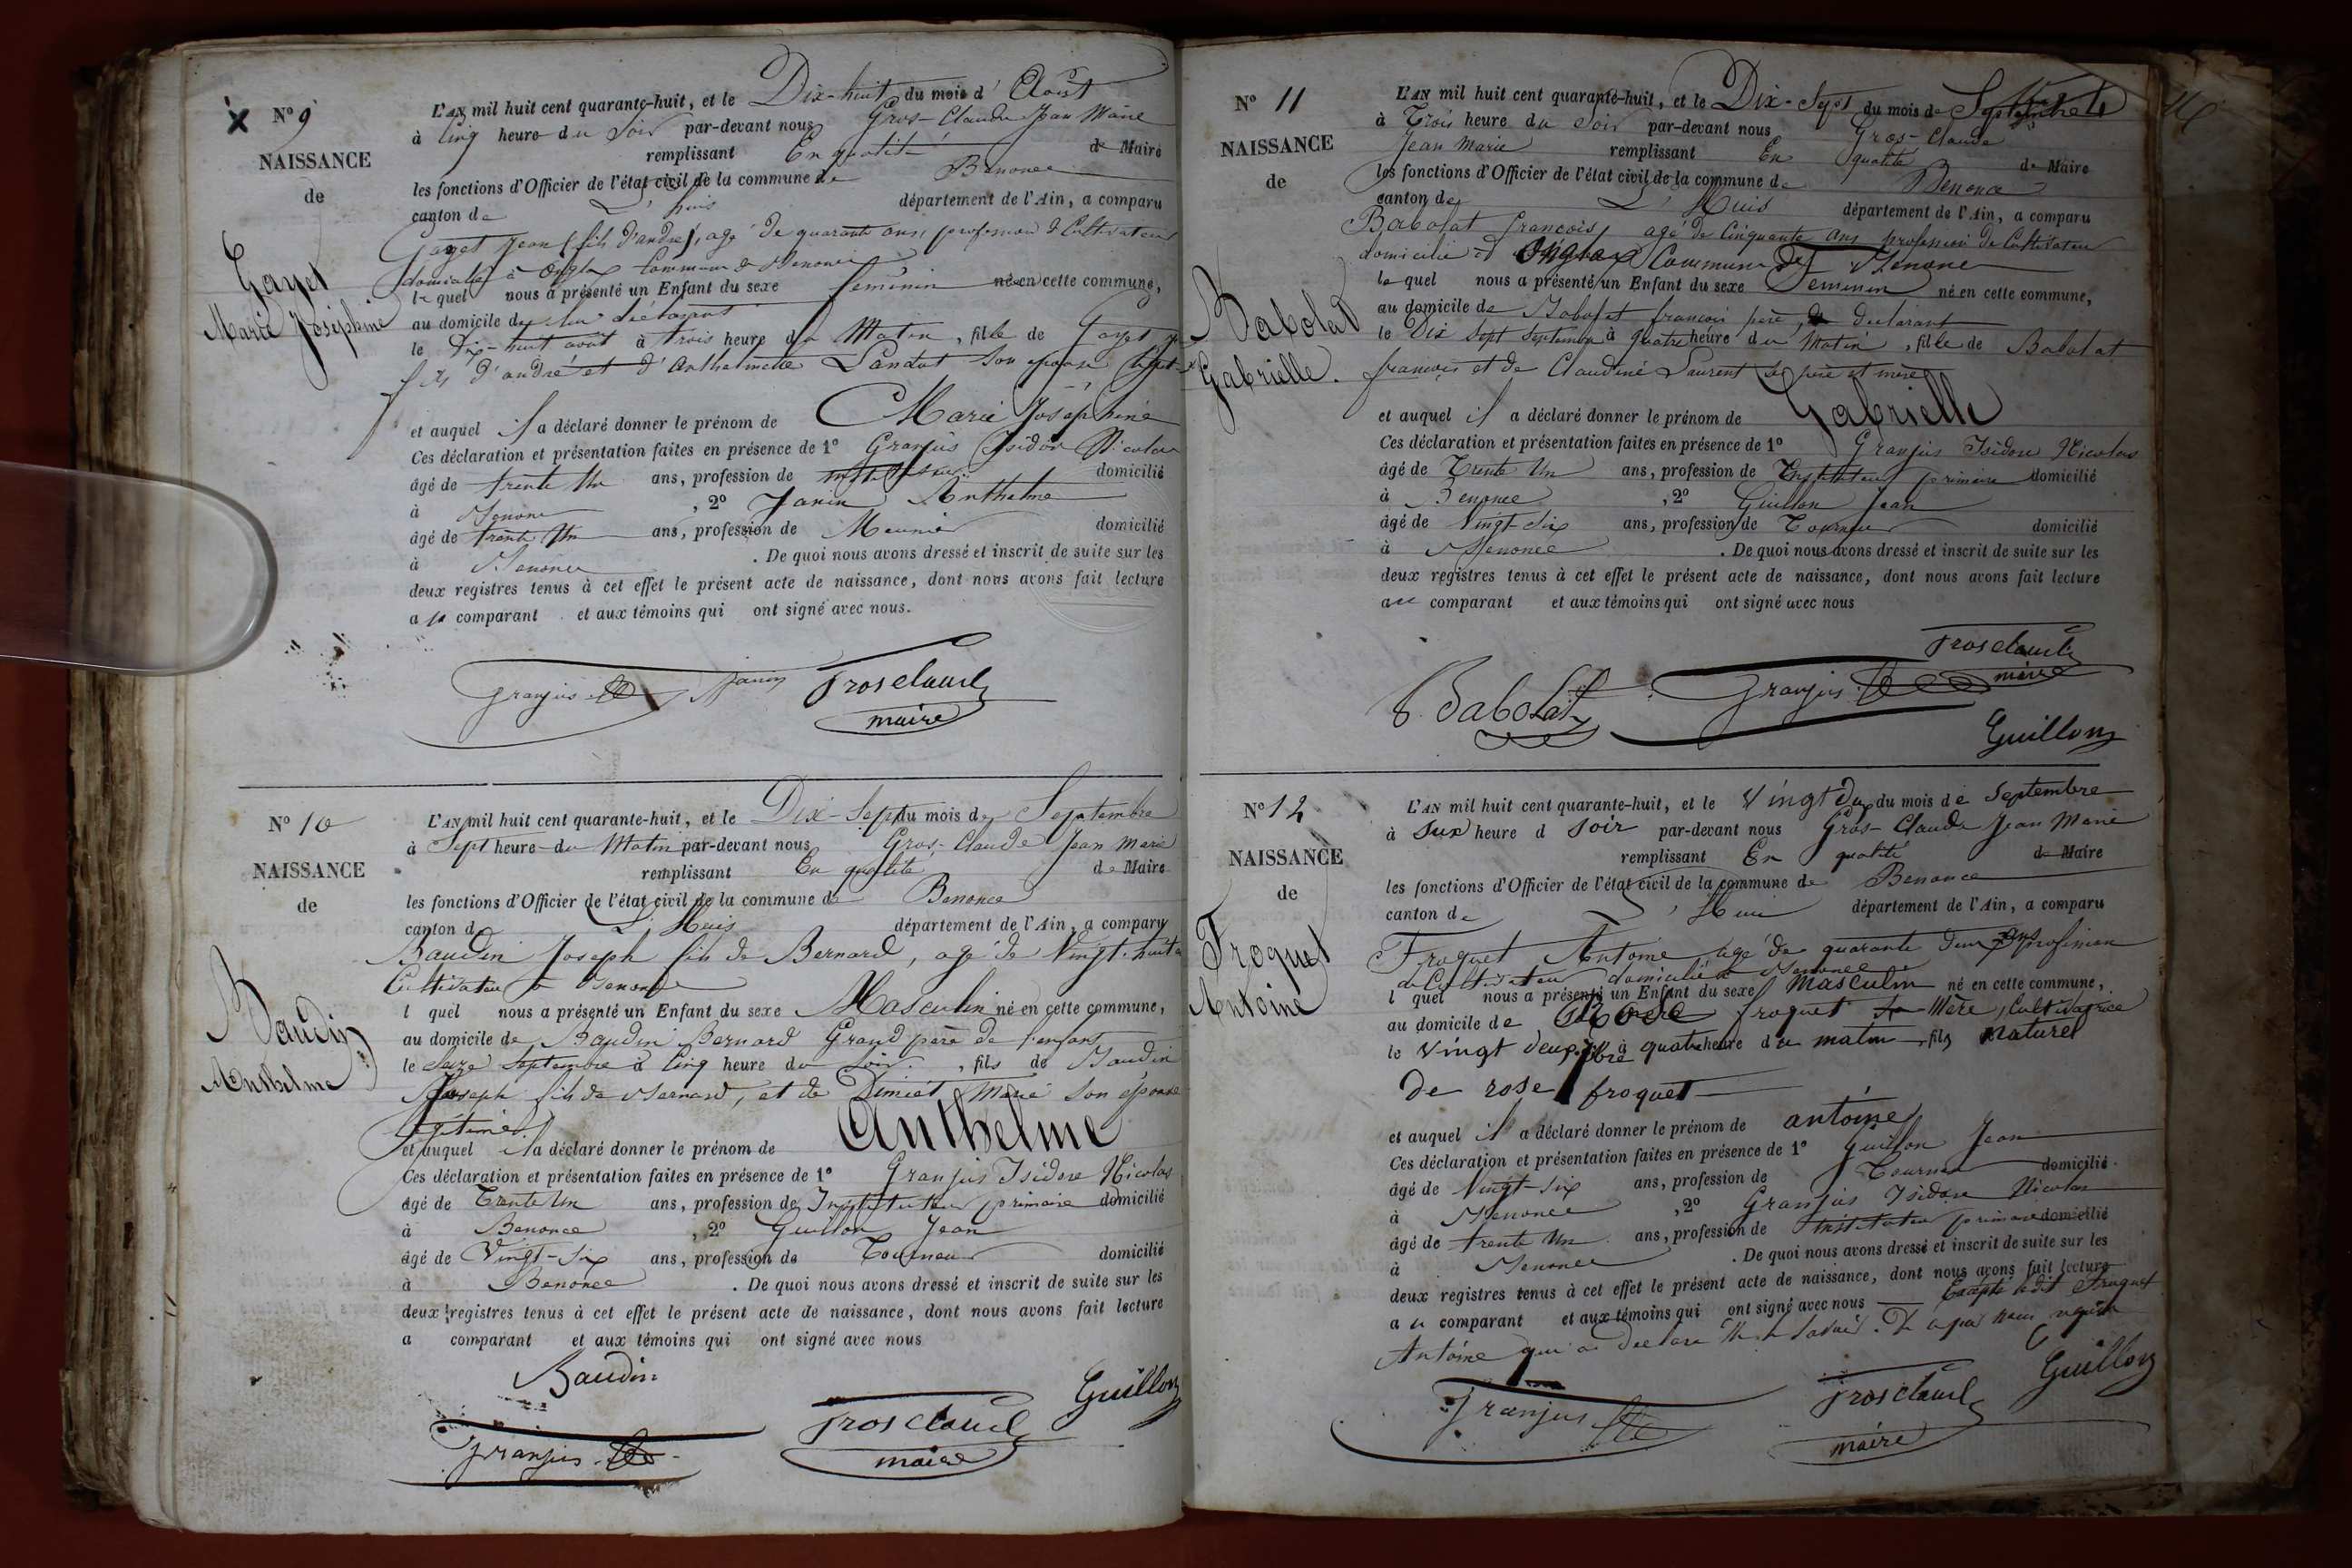 N° 9
NAISSANCE
de
Gayet
Marie Joséphine
L'AN mil huit cent quarante-huit, et le Dix-huit du mois d' Août
à Cinq heure du Soir par-devant nous Gros-Claude Jean Marie
remplissant En qualité de Maire
les fonctions d'Officier de l'état civil de la commune de Benonce
canton de L'huis département de l'Ain, a comparu
Gayet Jean (fils d'andré), agé de quarante ans, profession de Cultivateur
domicilié à Onglas Commune de Benonce
le quel nous a présenté un Enfant du sexe féminin né en cette commune,
au domicile du déclarant
le Dix-huit août à trois heure du Matin, fille de Gayet
fils d'andré et d'Anthelmette Landot son épouse
et auquel il a déclaré donner le prénom de Marie Joséphine
Ces déclaration et présentation faites en présence de 1° Granjus Isidore Nicolas
âgé de trente Un ans, profession de instituteur domicilié
à Benonce , 2° Janin Anthelme
âgé de trente Un ans, profession de Meunier domicilié
à Benonce . De quoi nous avons dressé et inscrit de suite sur les
deux registres tenus à cet effet le présent acte de naissance, dont nous avons fait lecture
au comparant et aux témoins qui ont signé avec nous.
Granjus Janin Grosclaude
maire
N° 10
NAISSANCE
de
Baudin
Anthelme
L'AN mil huit cent quarante-huit, et le Dix-Sept du mois de Septembre
à Sept heure du Matin par-devant nous Gros-Claude Jean Marie
remplissant En qualité de Maire
les fonctions d'Officier de l'état civil de la commune de Benonce
canton de L'Huis département de l'Ain, a comparu
Baudin Joseph fils de Bernard, agé de Vingt-huit
Cultivateur à Benonce
l quel nous a présenté un Enfant du sexe Masculin né en cette commune,
au domicile de Baudin Bernard Grand père de l'enfant
le Seize Septembre à Cinq heure du Soir, fils de Baudin
Joseph fils de Bernard, et de Dimiet Marie Son épouse
légitime
et auquel il a déclaré donner le prénom de Anthelme
Ces déclaration et présentation faites en présence de 1° Granjus Isidore Nicolas
âgé de Trente Un ans, profession de Instituteur primaire domicilié
à Benonce , 2° Guillon Jean
âgé de Vingt-Six ans, profession de Tourneur domicilié
à Benonce . De quoi nous avons dressé et inscrit de suite sur les
deux registres tenus à cet effet le présent acte de naissance, dont nous avons fait lecture
a comparant et aux témoins qui ont signé avec nous
Baudin
Granjus Grosclaude Guillon
maire
N° 11
NAISSANCE
de
Babolat
Gabrielle.
L'AN mil huit cent quarante-huit, et le Dix-Sept du mois de Septembre
à Trois heure du Soir par-devant nous Gros-Claude
Jean Marie remplissant En qualité de Maire
les fonctions d'Officier de l'état civil de la commune de Benonce
canton de L'Huis département de l'Ain, a comparu
Babolat francois, agé de Cinquante ans profession de Cultivateur
domicilié à Onglas Commune de Benonce
le quel nous a présenté un Enfant du sexe Feminin né en cette commune,
au domicile de Babolat francois père, déclarant
le Dix Sept Septembre à quatre heure du Matin, fille de Babolat
francois et de Claudine Laurent Se père et mère
et auquel il a déclaré donner le prénom de Gabrielle
Ces déclaration et présentation faites en présence de 1° Granjus Isidore Nicolas
âgé de Trente Un ans, profession de Instituteur primaire domicilié
à Benonce , 2° Guillon Jean
âgé de Vingt-Six ans, profession de Tourneur domicilié
à Benonce . De quoi nous avons dressé et inscrit de suite sur les
deux registres tenus à cet effet le présent acte de naissance, dont nous avons fait lecture
au comparant et aux témoins qui ont signé avec nous
Babolat Granjus Grosclaude
maire
Guillon
N° 12
NAISSANCE
de
Froquet
Antoine
L'AN mil huit cent quarante-huit, et le Vingt Deux du mois de Septembre
à Six heure d Soir par-devant nous Gros-Claude Jean Marie
remplissant En qualité de Maire
les fonctions d'Officier de l'état civil de la commune de Benonce
canton de L'Huis département de l'Ain, a comparu
Froquet Antoine agé de quarante Deux ans profession
de Cultivateur domicilié à Benonce
l quel nous a présenté un Enfant du sexe Masculin né en cette commune,
au domicile de Rose froquet Sa Mère, Cultivatrice
le Vingt Deux à quatre heure du matin, fils naturel
de rose froquet
et auquel il a déclaré donner le prénom de antoine
Ces déclaration et présentation faites en présence de 1° Guillon Jean
âgé de Vingt-Six ans, profession de Tourneur domicilié
à Benonce , 2° Granjus Isidore Nicolas
âgé de trente Un ans, profession de instituteur primaire domicilié
à Benonce . De quoi nous avons dressé et inscrit de suite sur les
deux registres tenus à cet effet le présent acte de naissance, dont nous avons fait lecture
au comparant et aux témoins qui ont signé avec nous Excepté ledit Froquet
Antoine qui a Déclaré ne le Savoir. De a par nous requis
Granjus Grosclaude Guillon
maire